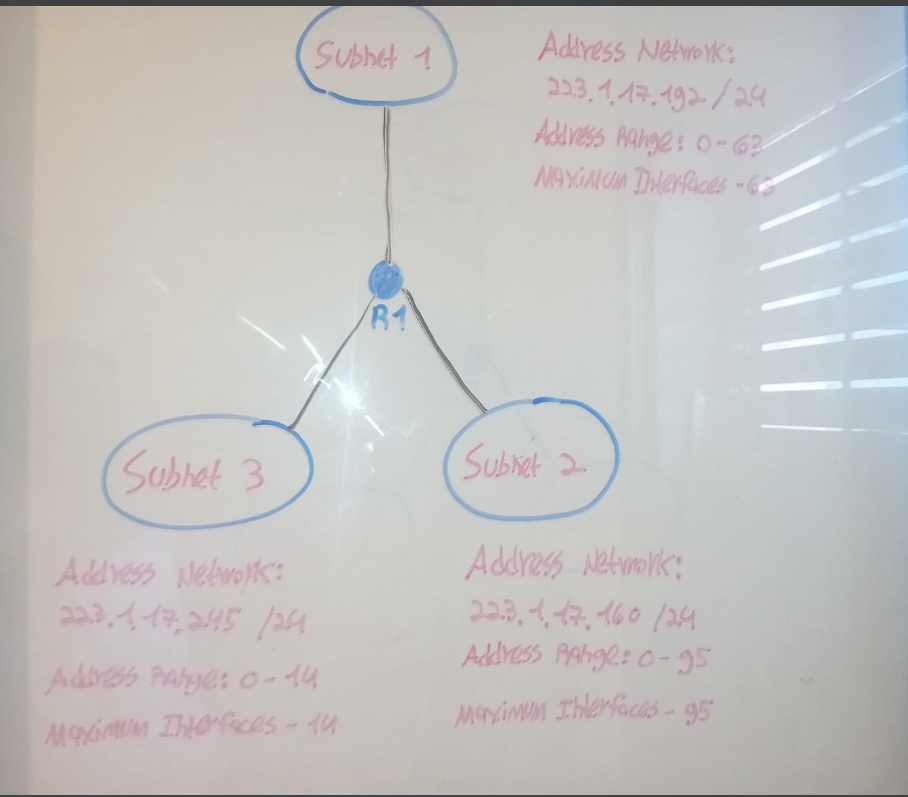 Subnet 1
Address Network:
223.1.17.192 /24
Address Range: 0-63
Maximum Interfaces - 63
R1
Subnet 3
Subnet 2
Address Network:
223.1.17.245 /24
Address Range: 0-14
Maximum Interfaces - 14
Address Network:
223.1.17.160 /24
Address Range: 0-95
Maximum Interfaces - 95